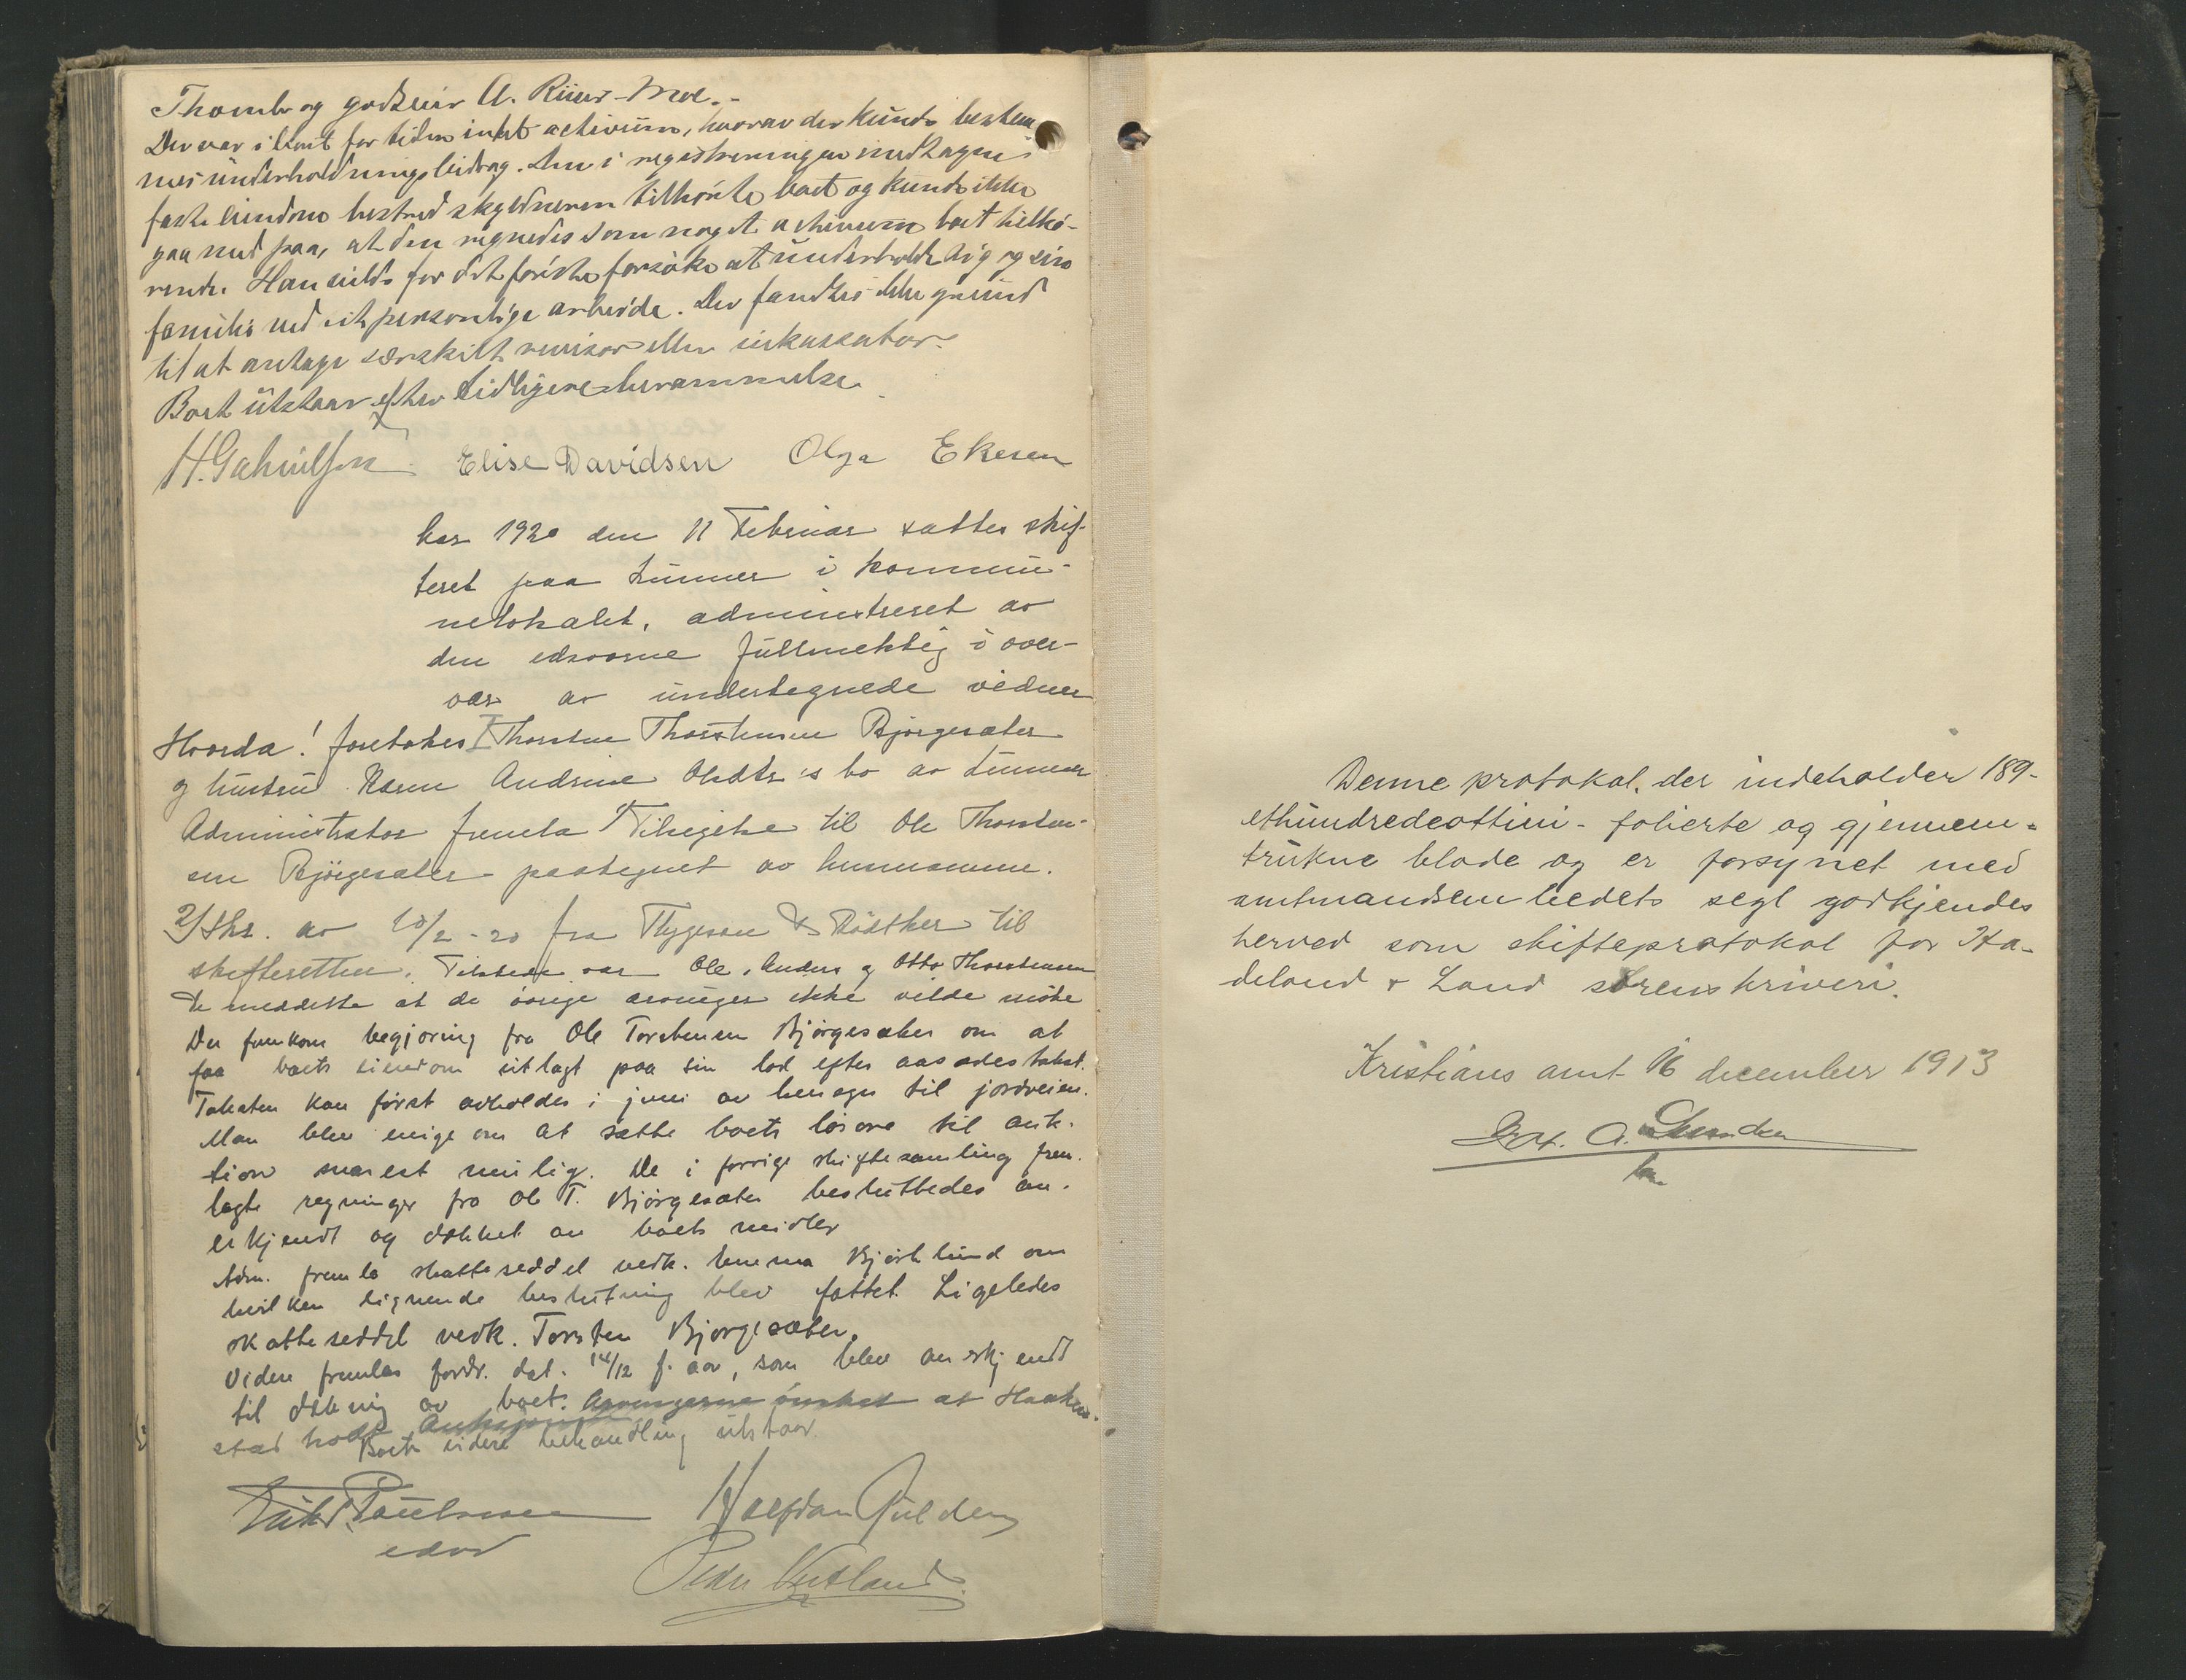 Thomle og godseier A. Riis-Moe.-
Der var i boet for tiden intet activum, hvorav der kunde bestem
mes underholdningsbidrag. Den i registreringen medtagne
faste eiendom bestred skyldneren tilhørte boet og kunde ikke
gaa med paa, at den regnedes som noget activum boet tilhø-
rende. Han vilde for det første forsøke at underholde sig og sin
familie ved sit personlige arbeide. Der fandtes ikke grund
til at antage særskilt revisor eller inkassator.
Boet utstaar efter tidligere berammelse.
H. Gabrielsen Elise Davidsen Olga Ekeren
Aar 1920 den 11 Februar sattes skif-
teret paa Lunner i kommu-
nelokalet, administreret av
den edsvorne fuldmektig i over-
vær av undertegnede vidner
Hvorda! foretokes I Thorsten Thorstensen Bjørgesæter
og hustru Karen Andrine Olsdtr's bo av Lunner
Administrator fremla 1) Tilsigelse til Ole Thorsten-
sen Bjørgesæter paategnet av lensmannen.
2/ Skr. av 10/2-20 fra Thygeson & Røsther til
skifteretten. Tilstede var Ole, Anders og Otto Thorstensen
De meddelte at de øvrige arvinger ikke vilde møte
Der fremkom begjæring fra Ole Torstensen Bjørgesæter om at
faa boets eiendom utlagt paa sin lod efter aasædestakst.
Taksten kan først avholdes i juni av hensyn til jordveien.
Man blev enige om at sætte boets løsøre til auk-
tion snarest mulig. De i forrige skiftesamling frem-
lagte regninger fra Ole T. Bjørgesæter besluttedes an-
erkjendt og dækket av boets midler
Adm. fremla skatteseddel vedk. Emma Bjørklund om
hvilken lignende beslutning blev fattet. Ligeledes
skatteseddel vedk. Torsten Bjørgesæter.
Videre fremlas fordr. dat. 14/12 f. aar, som blev anerkjendt
til dækning av boet. Arvingerne ønsket at Haaken-
stad holdt Auksjonen
Boets videre behandling utstaar.
Erik Paulssen Halfdan Gulden
edsv
Peder Vestland
Denne protokol, der indeholder 189-
ethundredeottini- folierte og gjennem-
trukne blade og er forsynet med
amtmandsembedets segl godkjendes
herved som skifteprotokol for Ha-
deland & Land sorenskriveri.
Kristians amt 16 december 1913
A. Lunden